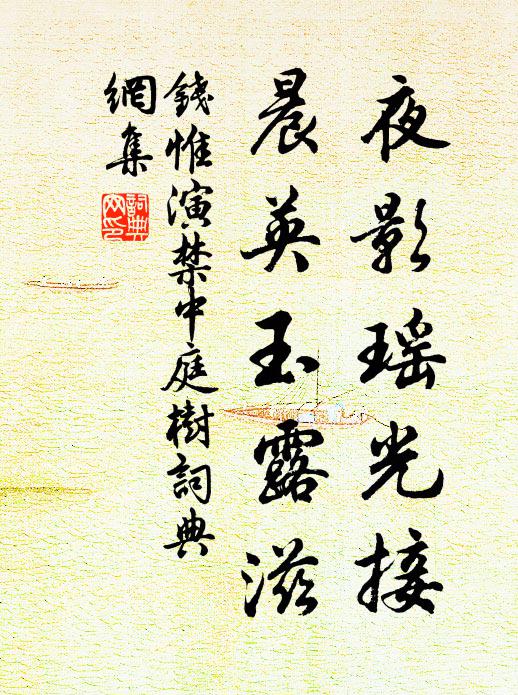 夜影瑶光接
晨英玉露滋
錢惟演禁中庭樹詞典
網集
詞典
网印